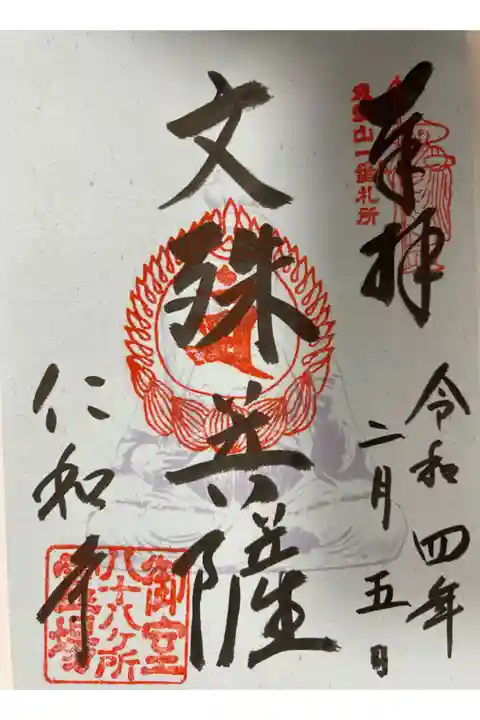 奉拝
山一番札所
令和四年
二月五日
文殊菩薩
仁和寺
御室
八十八ケ所
霊場